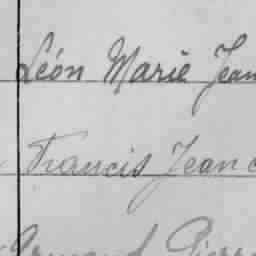 Léon Marie Jean
Francis Jean
Armand Pierre